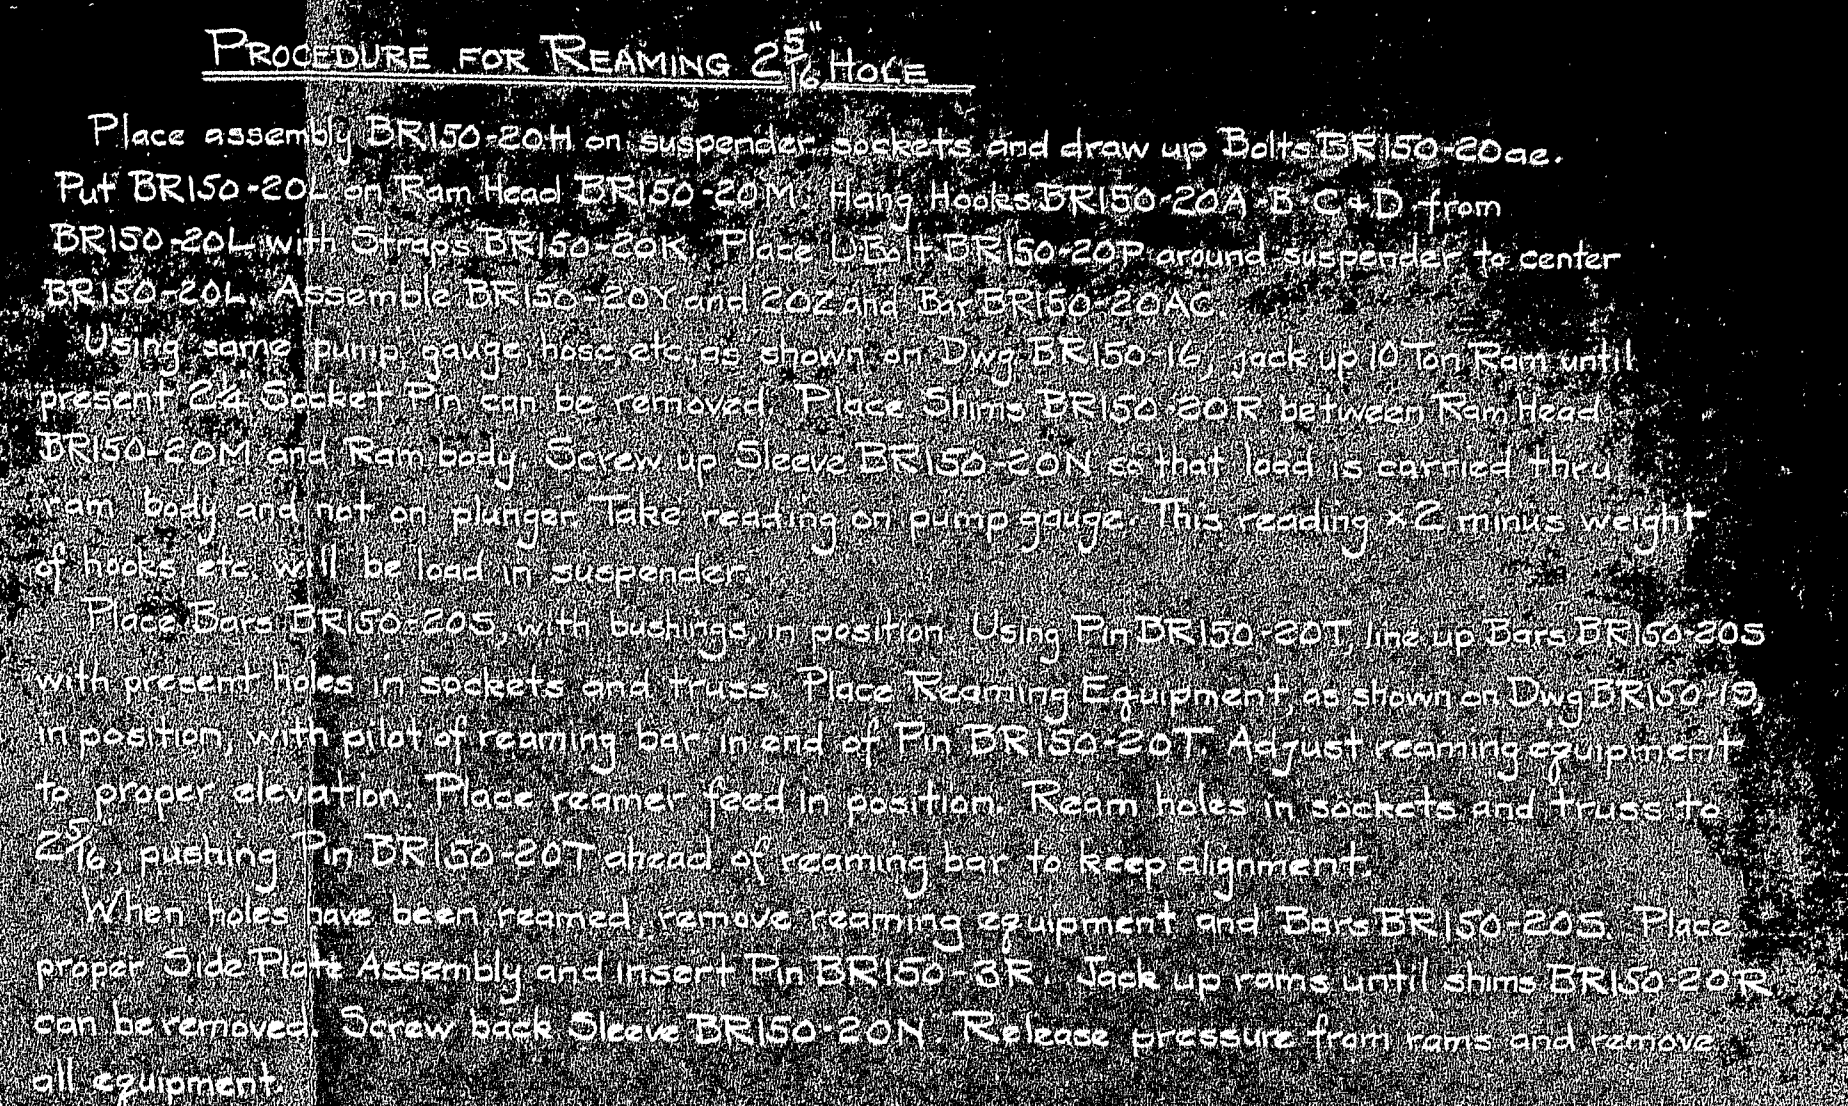 PROCEDURE FOR REAMING 2 5/16" HOLE
Place assembly BR150-20H on suspender sockets and draw up Bolts BR150-20ae.
Put BR150-20L on Ram Head BR150-20M. Hang Hooks BR150-20A-B-C+D from
BR150-20L with Straps BR150-20K. Place U Bolt BR150-20P around suspender to center
BR150-20L. Assemble BR150-20Y and 20Z and Bar BR150-20AC.
Using same pump, gauge, hose etc. as shown on Dwg BR150-16, jack up 10 Ton Ram until
present 2 1/4 Socket Pin can be removed. Place Shims BR150-20R between Ram Head
BR150-20M and Ram body. Screw up Sleeve BR150-20N so that load is carried thru
ram body and not on plunger. Take reading on pump gauge. This reading x 2 minus weight
of hooks etc. will be load in suspender.
Place Bars BR150-20S, with bushings, in position. Using Pin BR150-20T, line up Bars BR150-20S
with present holes in sockets and truss. Place Reaming Equipment, as shown on Dwg BR150-19,
in position, with pilot of reaming bar in end of Pin BR150-20T. Adjust reaming equipment
to proper elevation. Place reamer feed in position. Ream holes in sockets and truss to
2 5/16, pushing Pin BR150-20T ahead of reaming bar to keep alignment.
When holes have been reamed, remove reaming equipment and Bars BR150-20S. Place
proper Side Plate Assembly and insert Pin BR150-3R. Jack up rams until shims BR150-20R
can be removed. Screw back Sleeve BR150-20N. Release pressure from rams and remove
all equipment.